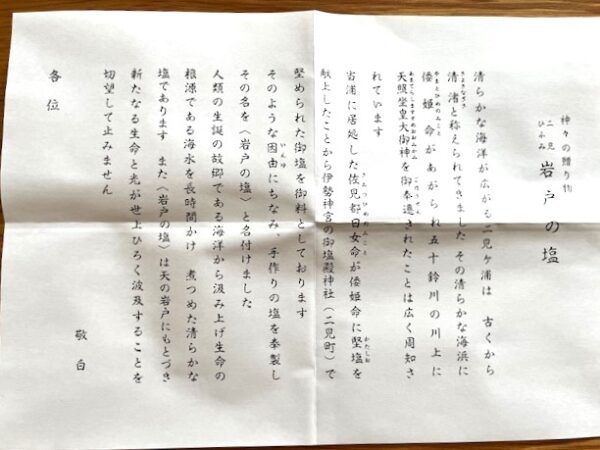 神々の贈り物
二見 岩戸の塩
ふたみ
清らかな海洋が広がる二見ヶ浦は 古くから
きよきなぎさ
清渚と称えられてきました その清らかな海浜に
やまとひめのみこと
倭姫命があがられ五十鈴川の川上に
あまてらしますすめおおみかみ
天照坐皇大御神を御奉遷されたことは広く周知さ
れています
さみつひめのみこと
当浦に居処した佐見都日女命が倭姫命に堅塩を
かたしお
献上したことから伊勢神宮の御塩殿神社(二見町)で
堅められた御塩を御料としております
いんゆ
そのような因由にちなみ、手作りの塩を奉製し
その名を〈岩戸の塩〉と名付けました
人類の生誕の故郷である海洋から汲み上げ生命の
根源である海水を長時間かけ 煮つめた清らかな
塩であります また〈岩戸の塩〉は天の岩戸にもとづき
新たなる生命と光が世上ひろく波及することを
切望して止みません
敬白
各位